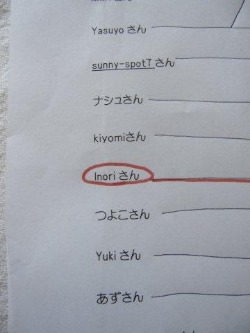 Yasuyo さん
sunny-spotT さん
ナシュさん
kiyomiさん
Inori さん
つよこさん
Yuki さん
あずさん